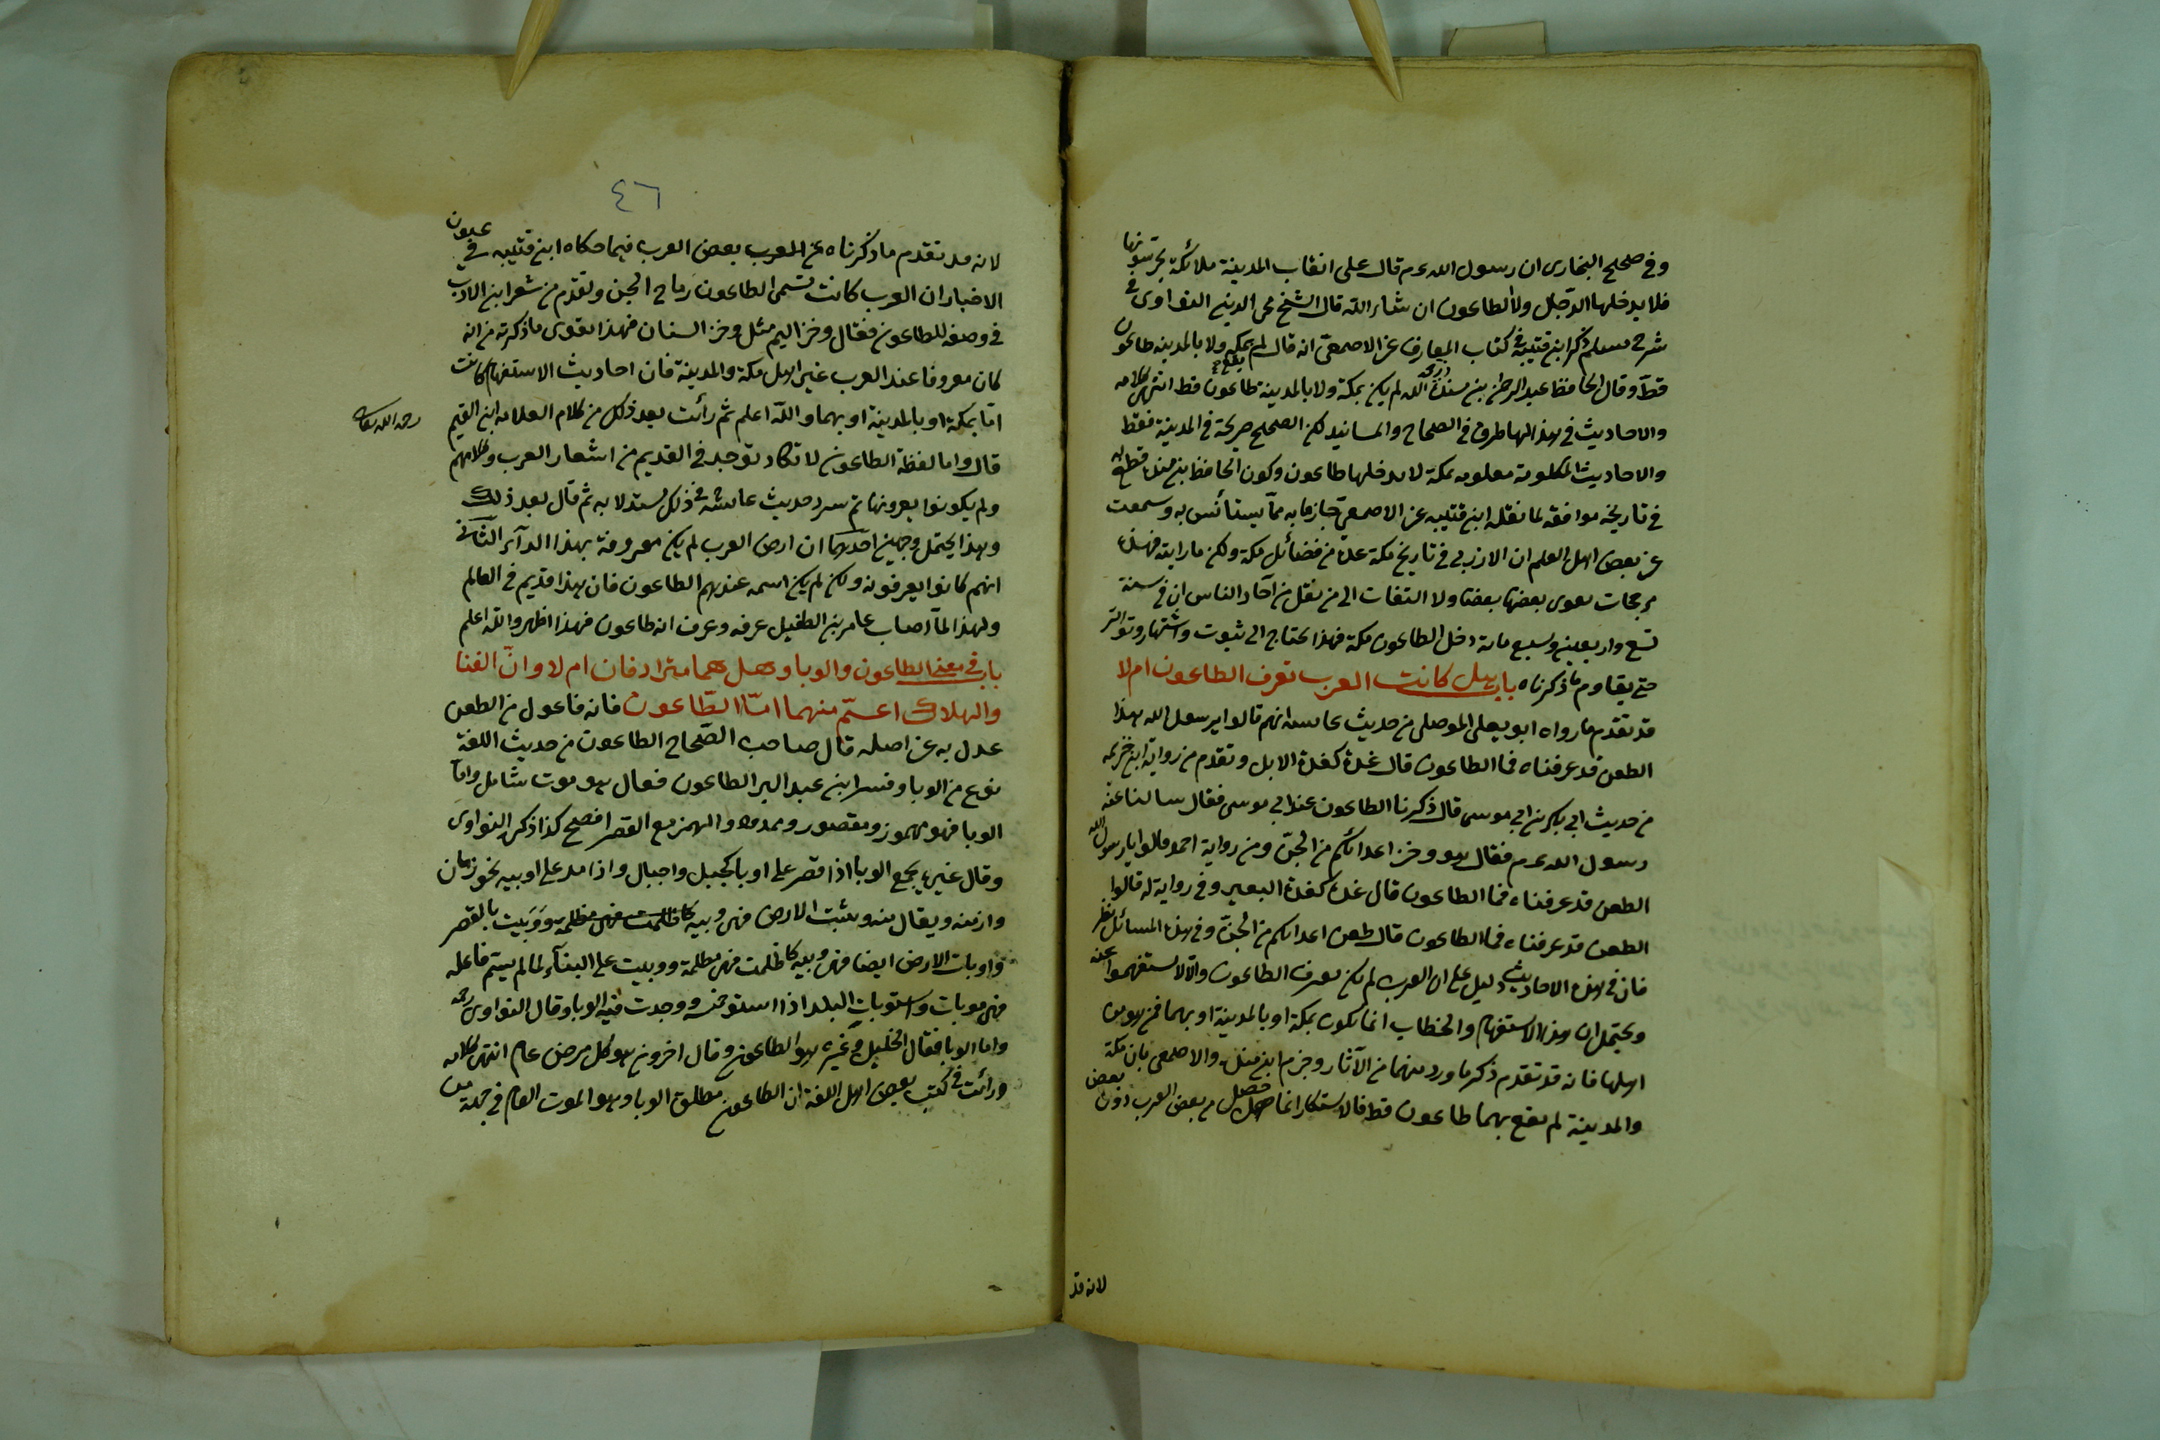 وفى صحيح البخارى ان رسول الله عم قال على انقاب المدينة ملائكة يحرسونها
فلا يدخلها الدجال ولا الطاعون ان شاء الله قال الشيخ محى الدين النواوى فى
شرح مسلم ذكر ابن قتيبة فى كتاب المعارف عن الاصمعى انه قال لم يكن بمكة ولا بالمدينة طاعون
قط وقال الحافظ عبد الرحمن بن مندة لم يكن بمكة ولا بالمدينة طاعون قط انتهى كلامه
والاحاديث فى هذا لها طرق فى الصحاح والمسانيد لكن الصحيح صريحة فى المدينة فقط
والاحاديث معلومه بمكة لا يدخلها طاعون وكون الحافظ بن مندة قطع به
فى تاريخه موافقه لما نقله ابن قتيبه عن الاصمعى جازما به مما يستأنس به وسمعت
عن بعض اهل العلم ان الازرقى فى تاريخ مكة عده من فضائل مكة ولكن ما رايته فهذه
مرجحات يقوى بعضها بعضا ولا التفات الى من نقل من آحاد الناس ان فى سنة
تسع واربعين وسبع مائة دخل الطاعون مكة فهذا يحتاج الى ثبوت واشتهار وتواتر
حتى يقاوم ما ذكرناه باب هل كانت العرب تعرف الطاعون ام لا
قد تقدم ما رواه ابو يعلى الموصلى من حديث عايشه انهم قالوا يرسول الله هذا
الطعن قد عرفناه فما الطاعون قال غدة كغدة الابل وتقدم من رواية ابن خزيمه
من حديث ابى بكر بن ابى موسى قال ذكرنا الطاعون عند ابى موسى فقال سالنا عنه
رسول الله عم فقال هو وخز اعدائكم من الجن ومن رواية احمد قالوا يا رسول الله
الطعن قد عرفناه فما الطاعون قال غدة كغدة البعير وفى رواية له قالوا
الطعن قد عرفناه فما الطاعون قال طعن اعدائكم من الجن وفى هذه المسائل نظر
فان فى هذه الاحاديث دليل على ان العرب لم يكن تعرف الطاعون والا لاستفهموا عنه
ويحتمل ان هذا الاستفهام والخطاب انما يكون بمكة او بالمدينة او بهما فمن هو من
اهلها فانه قد تقدم ذكر ما ورد منهما من الآثار وجزم ابن مندة والاصمعى بان مكة
والمدينة لم يقع بهما طاعون قط فالاستنكار انما حصل من بعض العرب دون بعض
لانه قد
٤٦
لانه قد تقدم ما ذكرناه عن العرب بعض العرب فيما حكاه ابن قتيبه فى عيون
الاخبار ان العرب كانت تسمى الطاعون رماح الجن وتقدم من شعر ابن الاديب
فى وصفه للطاعون فقال وخز اليم مثل وخز السنان فهذا يقوى ما ذكرته من انه
كان معروفا عند العرب غير اهل مكة والمدينة فان احاديث الاستفهام كانت
اما بمكة او بالمدينة او بهما والله اعلم ثم رأيت بعد ذلك من كلام العلامه ابن القيم
رحمه الله تعالى
قال واما لفظة الطاعون لا تكاد توجد فى القديم من اشعار العرب وكلامهم
ولم يكونوا يعرفونها ثم سرد حديث عايشه فى ذلك مستدلا به ثم قال بعد ذلك
وهذا يحتمل وجهين احدهما ان ارض العرب لم يكن معروفة بهذا الدآء الثانى
انهم كانوا يعرفونه ولكن لم يكن اسمه عندهم الطاعون فان هذا قديم فى العالم
ولهذا لما اصاب عامر بن الطفيل عرفه وعرف انه طاعون فهذا اظهر والله اعلم
باب فى معنى الطاعون والوبا وهل هما مترادفان ام لا وانّ الفنا
والهلاك اعمّ منهما امّا الطاعون فانه فاعول من الطعن
عدل به عن اصله قال صاحب الصحاح الطاعون من حديث اللغة
نوع من الوبا وفسر ابن عبد البر الطاعون فقال هو موت شامل واما
الوبا فهو مهموز ومقصور وممدود والهمز مع القصر افصح كذا ذكره النواوى
وقال غيره يجمع الوبا اذا قصر على اوبا كجبل واجبال واذا مد على اوبيه نحو زمان
وازمنه ويقال منه وبئت الارض فهى وبيه كاظلمت فهى مظلمه ووبيت بالقصر
واوبات الارض ايضا فهى وبيه كاظلمت فهى مظلمة ووبيت على البنآء لما لم يسم فاعله
فهى موبات واستوبات البلد اذا استوخمته ووجدت فيه الوبا وقال النواوى رحمه
واما الوبا فقال الخليل وغيره هو الطاعون وقال اخرون هو كل مرض عام انتهى كلامه
ورأيت فى كتب بعض اهل اللغة ان الطاعون مطلق الوبا وهو الموت العام فى جملة من